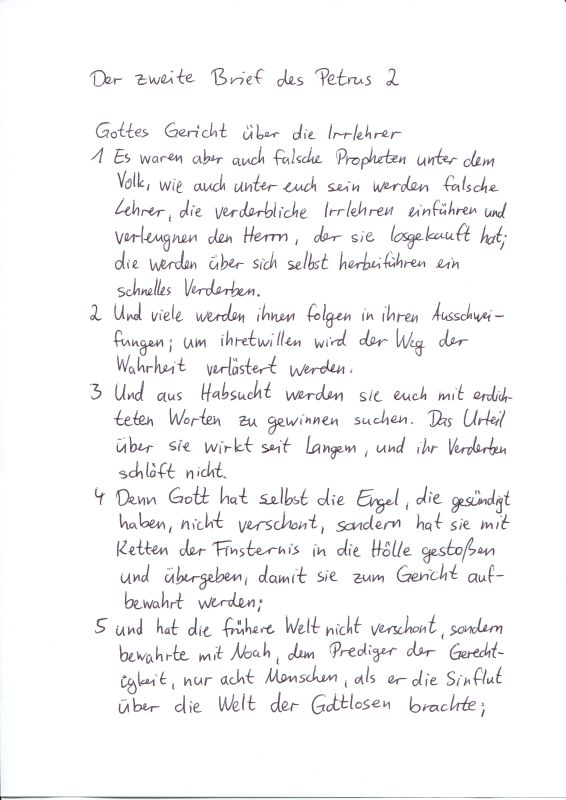 Der zweite Brief des Petrus 2
Gottes Gericht über die Irrlehrer
1 Es waren aber auch falsche Propheten unter dem
Volk, wie auch unter euch sein werden falsche
Lehrer, die verderbliche Irrlehren einführen und
verleugnen den Herrn, der sie losgekauft hat;
die werden über sich selbst herbeiführen ein
schnelles Verderben.
2 Und viele werden ihnen folgen in ihren Ausschwei-
fungen; um ihretwillen wird der Weg der
Wahrheit verlästert werden.
3 Und aus Habsucht werden sie euch mit erdich-
teten Worten zu gewinnen suchen. Das Urteil
über sie wirkt seit Langem, und ihr Verderben
schläft nicht.
4 Denn Gott hat selbst die Engel, die gesündigt
haben, nicht verschont, sondern hat sie mit
Ketten der Finsternis in die Hölle gestoßen
und übergeben, damit sie zum Gericht auf-
bewahrt werden;
5 und hat die frühere Welt nicht verschont, sondern
bewahrte mit Noah, dem Prediger der Gerecht-
igkeit, nur acht Menschen, als er die Sinflut
über die Welt der Gottlosen brachte;